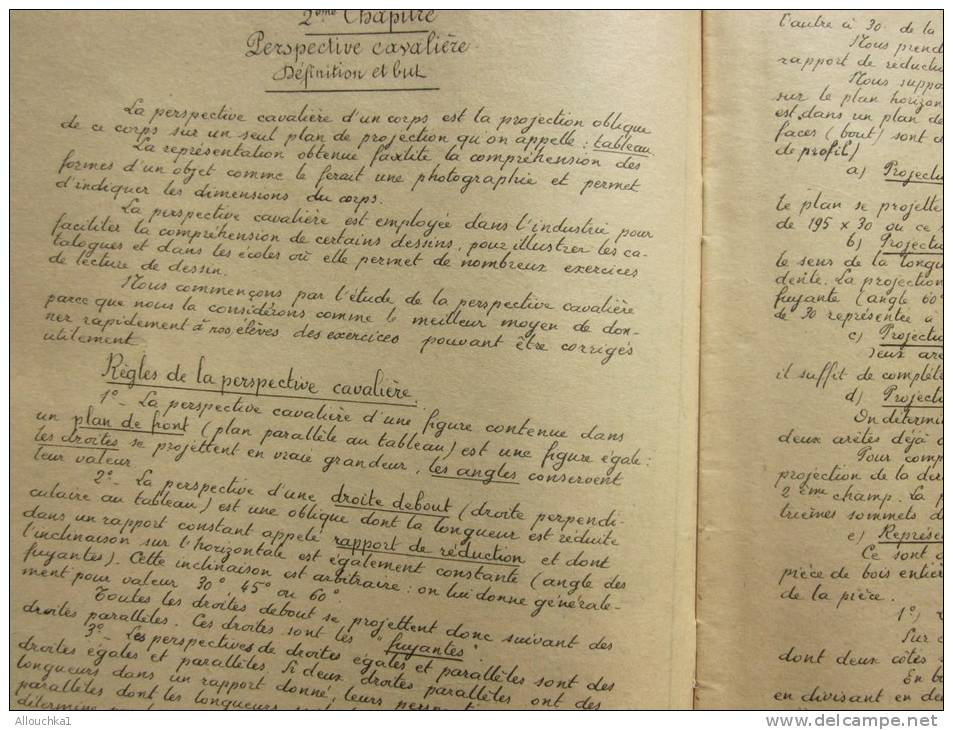 2ème Chapitre
Perspective cavalière
Définition et but
La perspective cavalière d'un corps est la projection oblique
de ce corps sur un seul plan de projection qu'on appelle : tableau
La représentation obtenue facilite la compréhension des
formes d'un objet comme le ferait une photographie et permet
d'indiquer les dimensions du corps.
La perspective cavalière est employée dans l'industrie pour
faciliter la compréhension de certains dessins, pour illustrer les ca-
talogues et dans les écoles où elle permet de nombreux exercices
de lecture de dessin.
Nous commençons par l'étude de la perspective cavalière
parce que nous la considérons comme le meilleur moyen de don-
ner rapidement à nos élèves des exercices pouvant être corrigés
utilement
Règles de la perspective cavalière.
1° - La perspective cavalière d'une figure contenue dans
un plan de front (plan parallèle au tableau) est une figure égale :
les droites se projettent en vraie grandeur, les angles conservent
leur valeur
2° - La perspective d'une droite debout (droite perpendi-
culaire au tableau) est une oblique dont la longueur est réduite
dans un rapport constant appelé rapport de réduction et dont
l'inclinaison sur l'horizontale est également constante (angle des
fuyantes). Cette inclinaison est arbitraire : on lui donne générale-
ment pour valeur 30° 45° ou 60°.
Toutes les droites debout se projettent donc suivant des
droites parallèles. Ces droites sont les "fuyantes".
3° - Les perspectives de droites égales et parallèles sont des
droites égales et parallèles Si deux droites parallèles ont des
longueurs dans un rapport donné, leurs perspect
parallèles dont les longueurs sont
détermine
l'autre à 30. de la
Nous prend
rapport de réducti
Nous suppo
sur le plan horizon
est dans un plan de
faces (bout) sont
de profil)
a) Projecti
Le plan se projette
de 195 x 30 ou ce
b) Projecti
le sens de la longu
dente. La projection
fuyante (angle 60°
de 30 représente à
c) Projection
Deux are
il suffit de compléte
d) Projecti
On détermi
deux arêtes déjà
Pour comp
projection de la der
2ème champ. La p
trièmes sommets d
e) Représe
Ce sont
pièce de bois entièr
de la pièce.
1°)
Sur
dont deux côtés
En b
en divisant en de
Allouchka1
www.delcampe.net